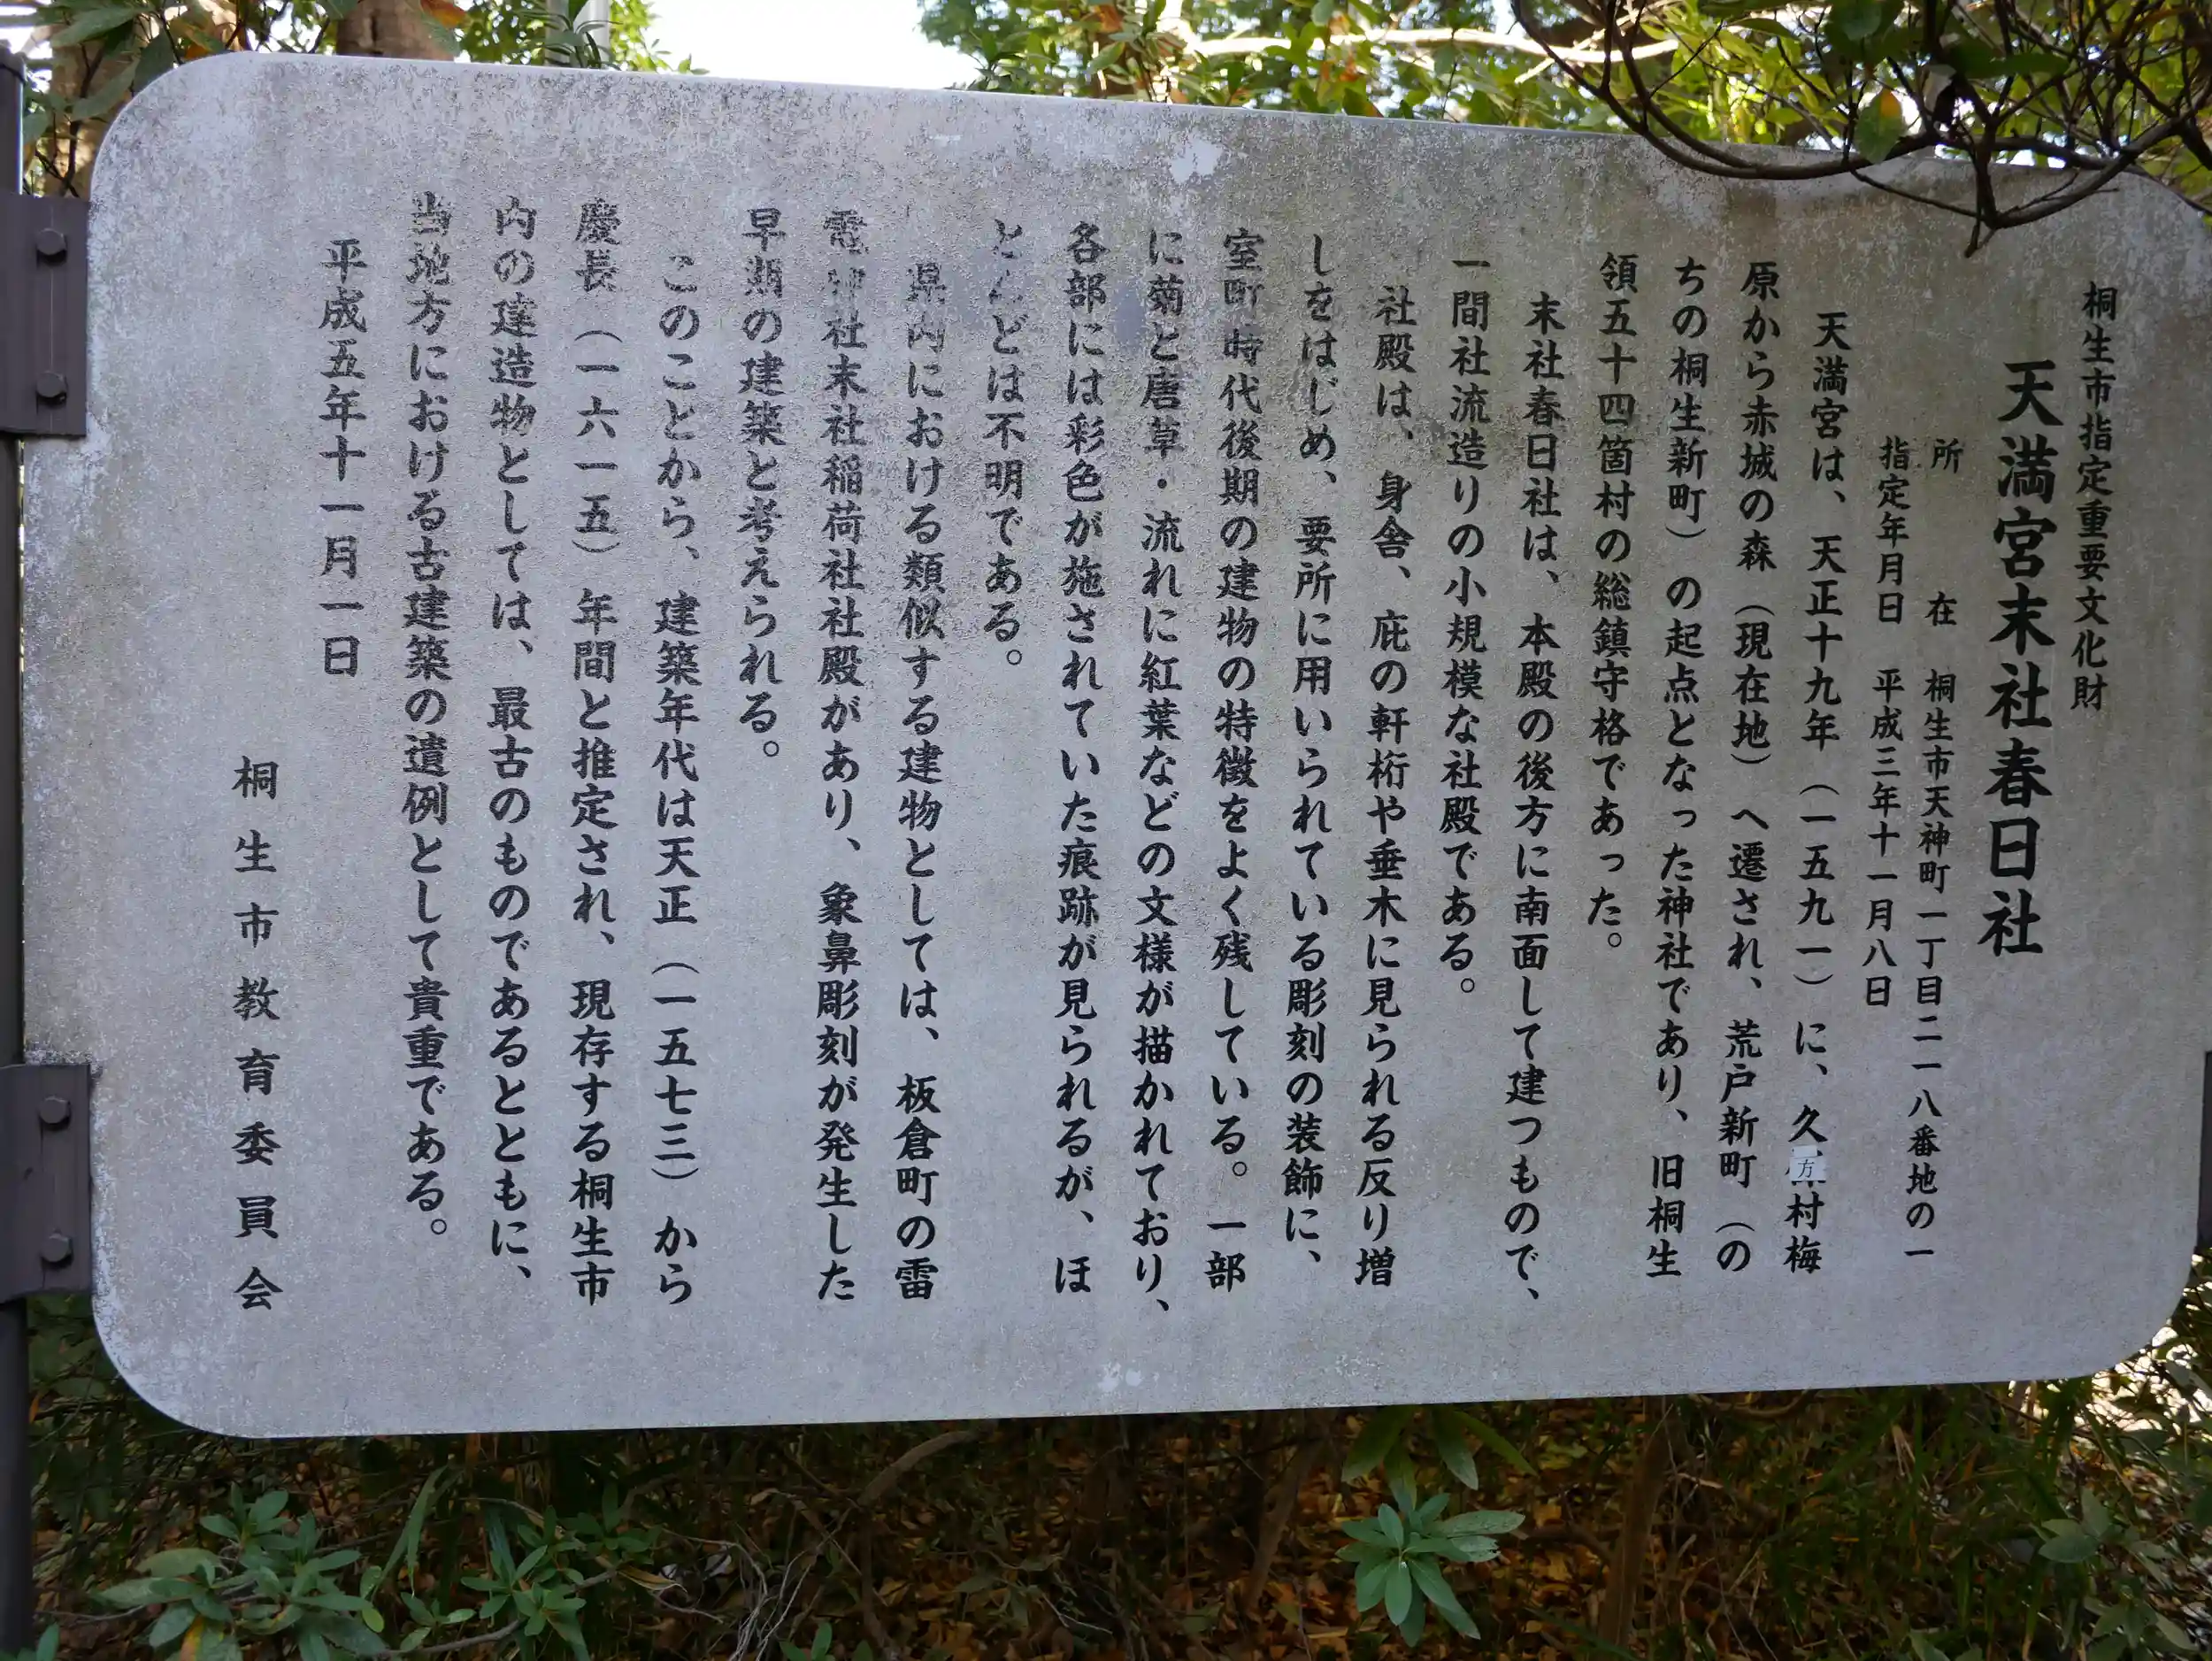 桐生市指定重要文化財
天満宮末社春日社
所 在 桐生市天神町一丁目二一八番地の一
指定年月日 平成三年十一月八日
天満宮は、天正十九年（一五九一）に、久方村梅
原から赤城の森（現在地）へ遷され、荒戸新町（の
ちの桐生新町）の起点となった神社であり、旧桐生
領五十四箇村の総鎮守格であった。
末社春日社は、本殿の後方に南面して建つもので、
一間社流造りの小規模な社殿である。
社殿は、身舎、庇の軒桁や垂木に見られる反り増
しをはじめ、要所に用いられている彫刻の装飾に、
室町時代後期の建物の特徴をよく残している。一部
に菊と唐草・流れに紅葉などの文様が描かれており、
各部には彩色が施されていた痕跡が見られるが、ほ
とんどは不明である。
県内における類似する建物としては、板倉町の雷
電神社末社稲荷社社殿があり、象鼻彫刻が発生した
早期の建築と考えられる。
このことから、建築年代は天正（一五七三）から
慶長（一六一五）年間と推定され、現存する桐生市
内の建造物としては、最古のものであるとともに、
当地方における古建築の遺例として貴重である。
平成五年十一月一日
桐生市教育委員会